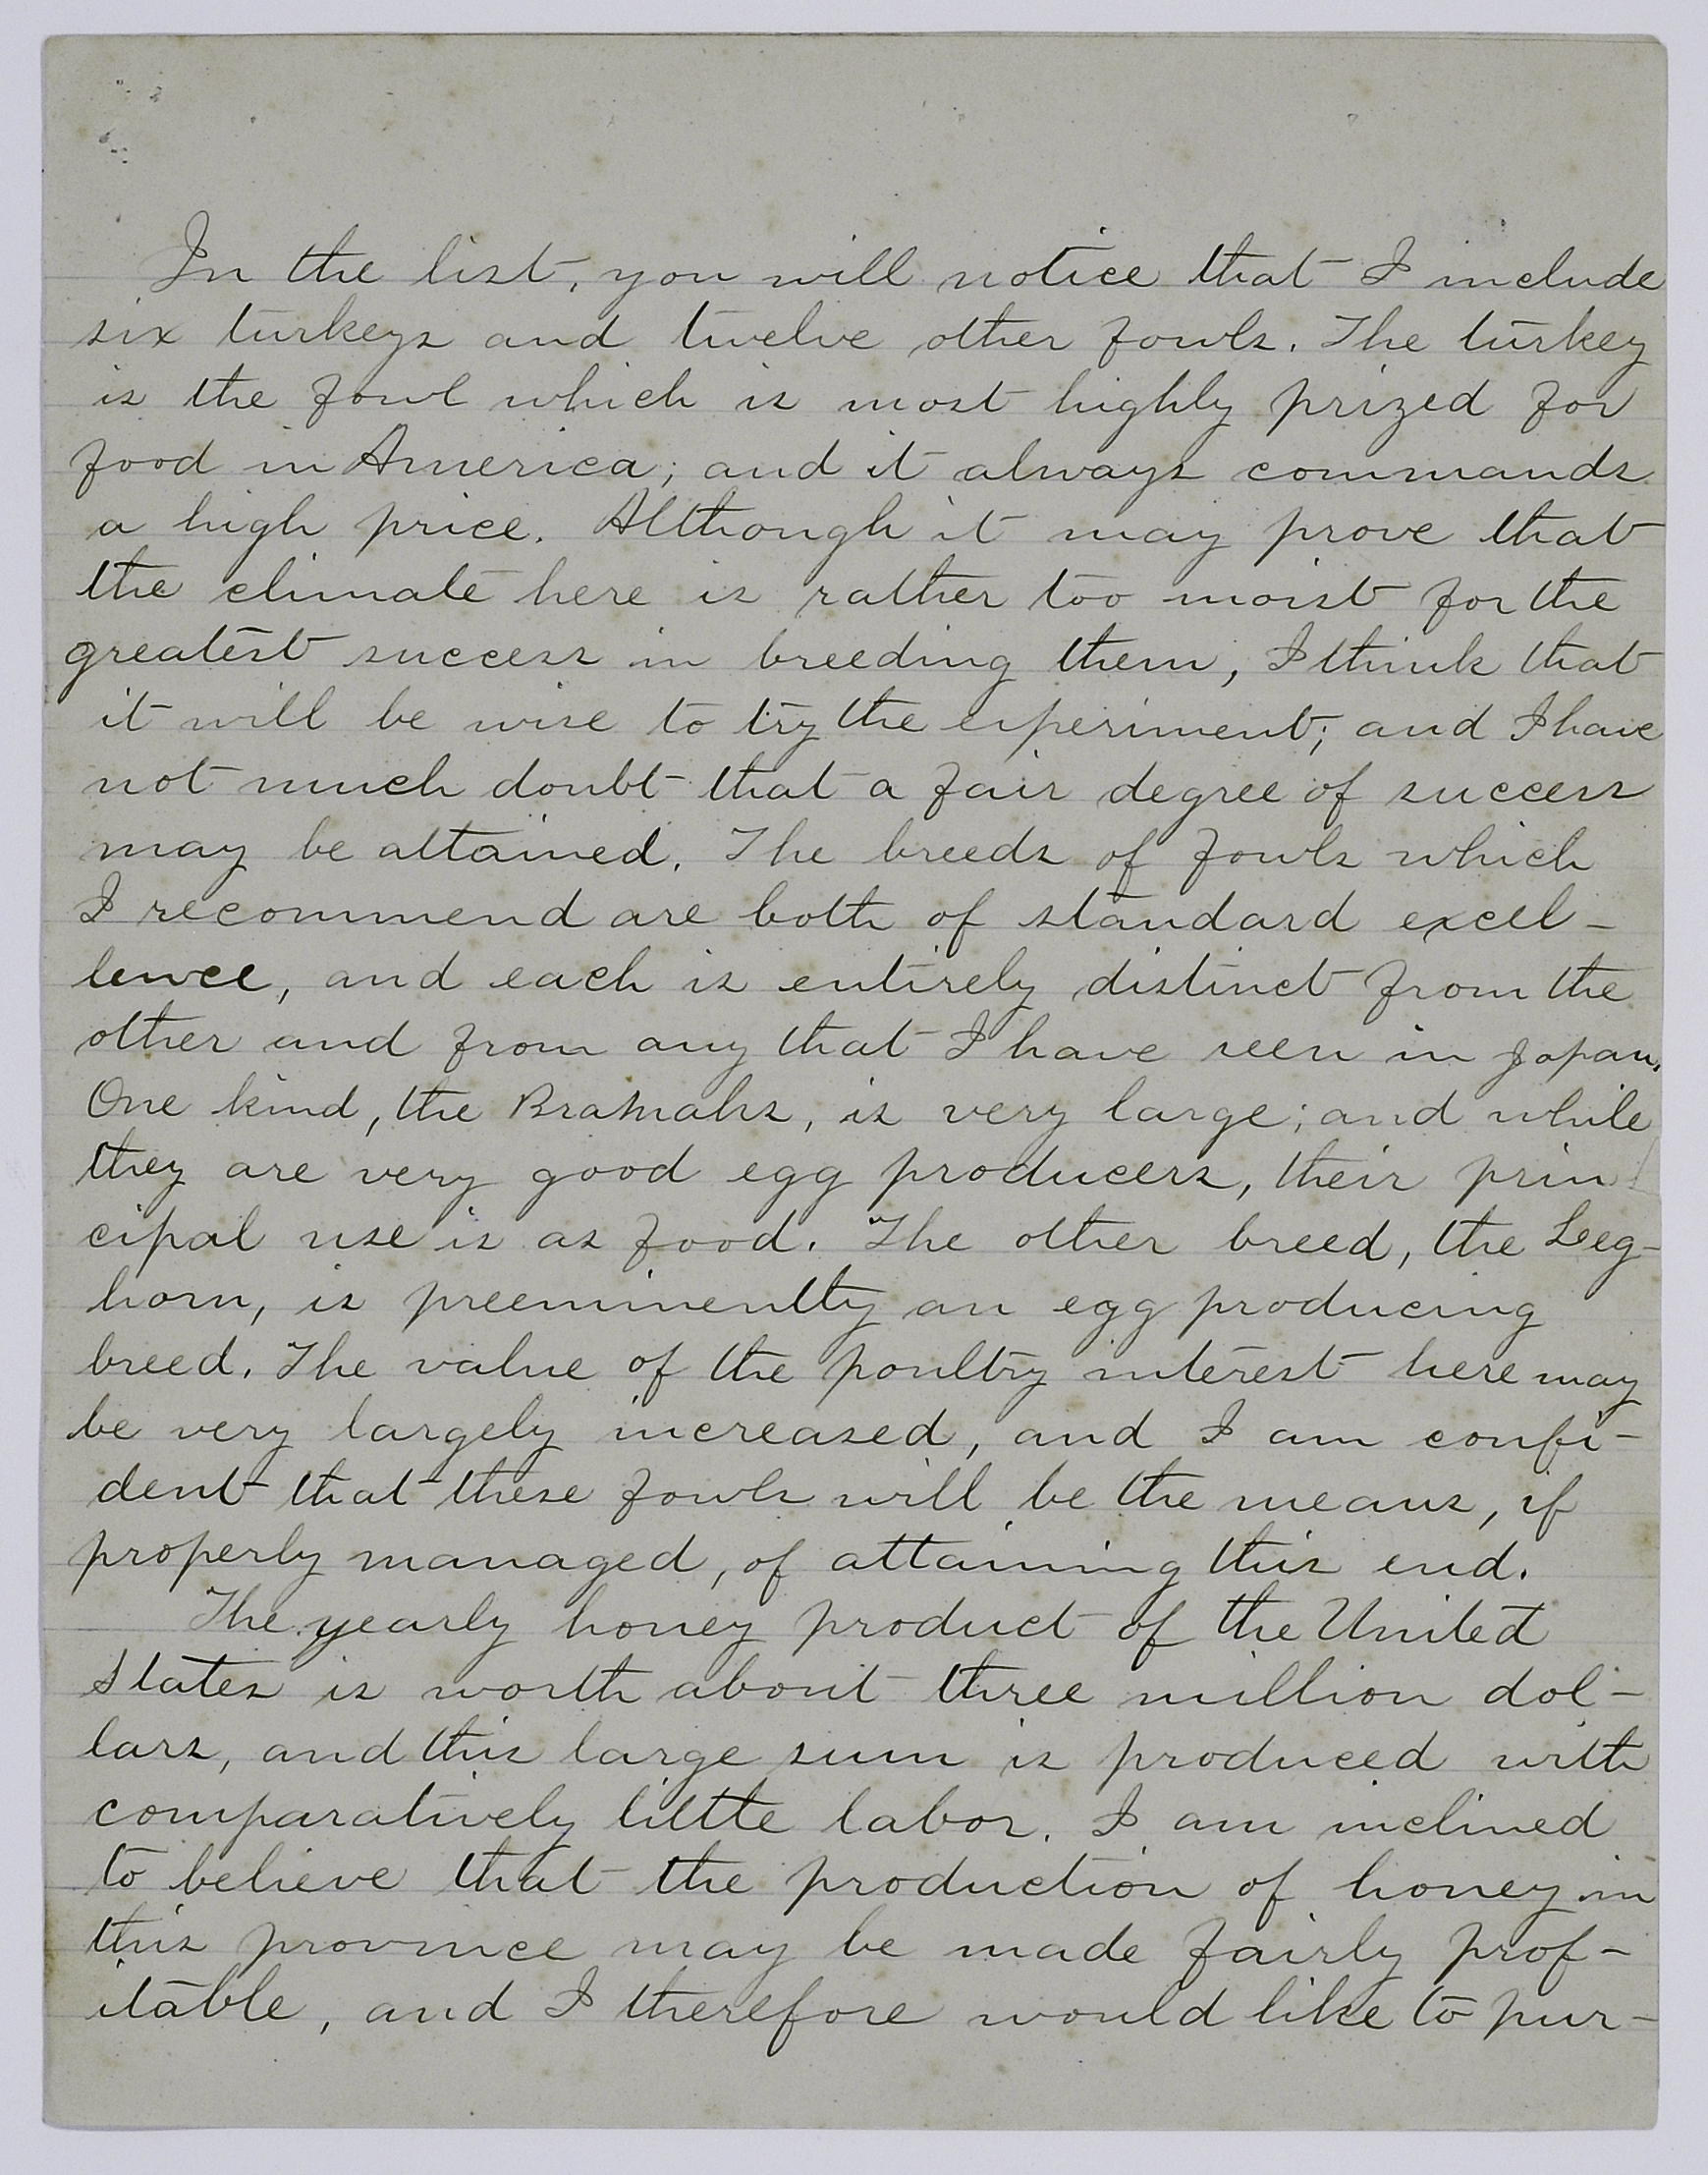 In the list, you will notice that I include
six turkeys and twelve other fowls. The turkey
is the fowl which is most highly prized for
food in America; and it always commands
a high price. Although it may prove that
the climate here is rather too moist for the
greatest success in breeding them, I think that
it will be wise to try the experiment; and I have
not much doubt that a fair degree of success
may be attained. The breeds of fowls which
I recommend are both of standard excel-
lence, and each is entirely distinct from the
other and from any that I have seen in Japan.
One kind, the Bramahs, is very large; and while
they are very good egg producers, their prin
cipal use is as food. The other breed, the Leg-
horn, is preeminently an egg producing
breed. The value of the poultry interest here may
be very largely increased, and I am confi-
dent that these fowls will be the means, if
properly managed, of attaining this end.
The yearly honey product of the United
States is worth about three million dol-
lars, and this large sum is produced with
comparatively little labor. I am inclined
to believe that the production of honey in
this province may be made fairly prof-
itable, and I therefore would like to pur-